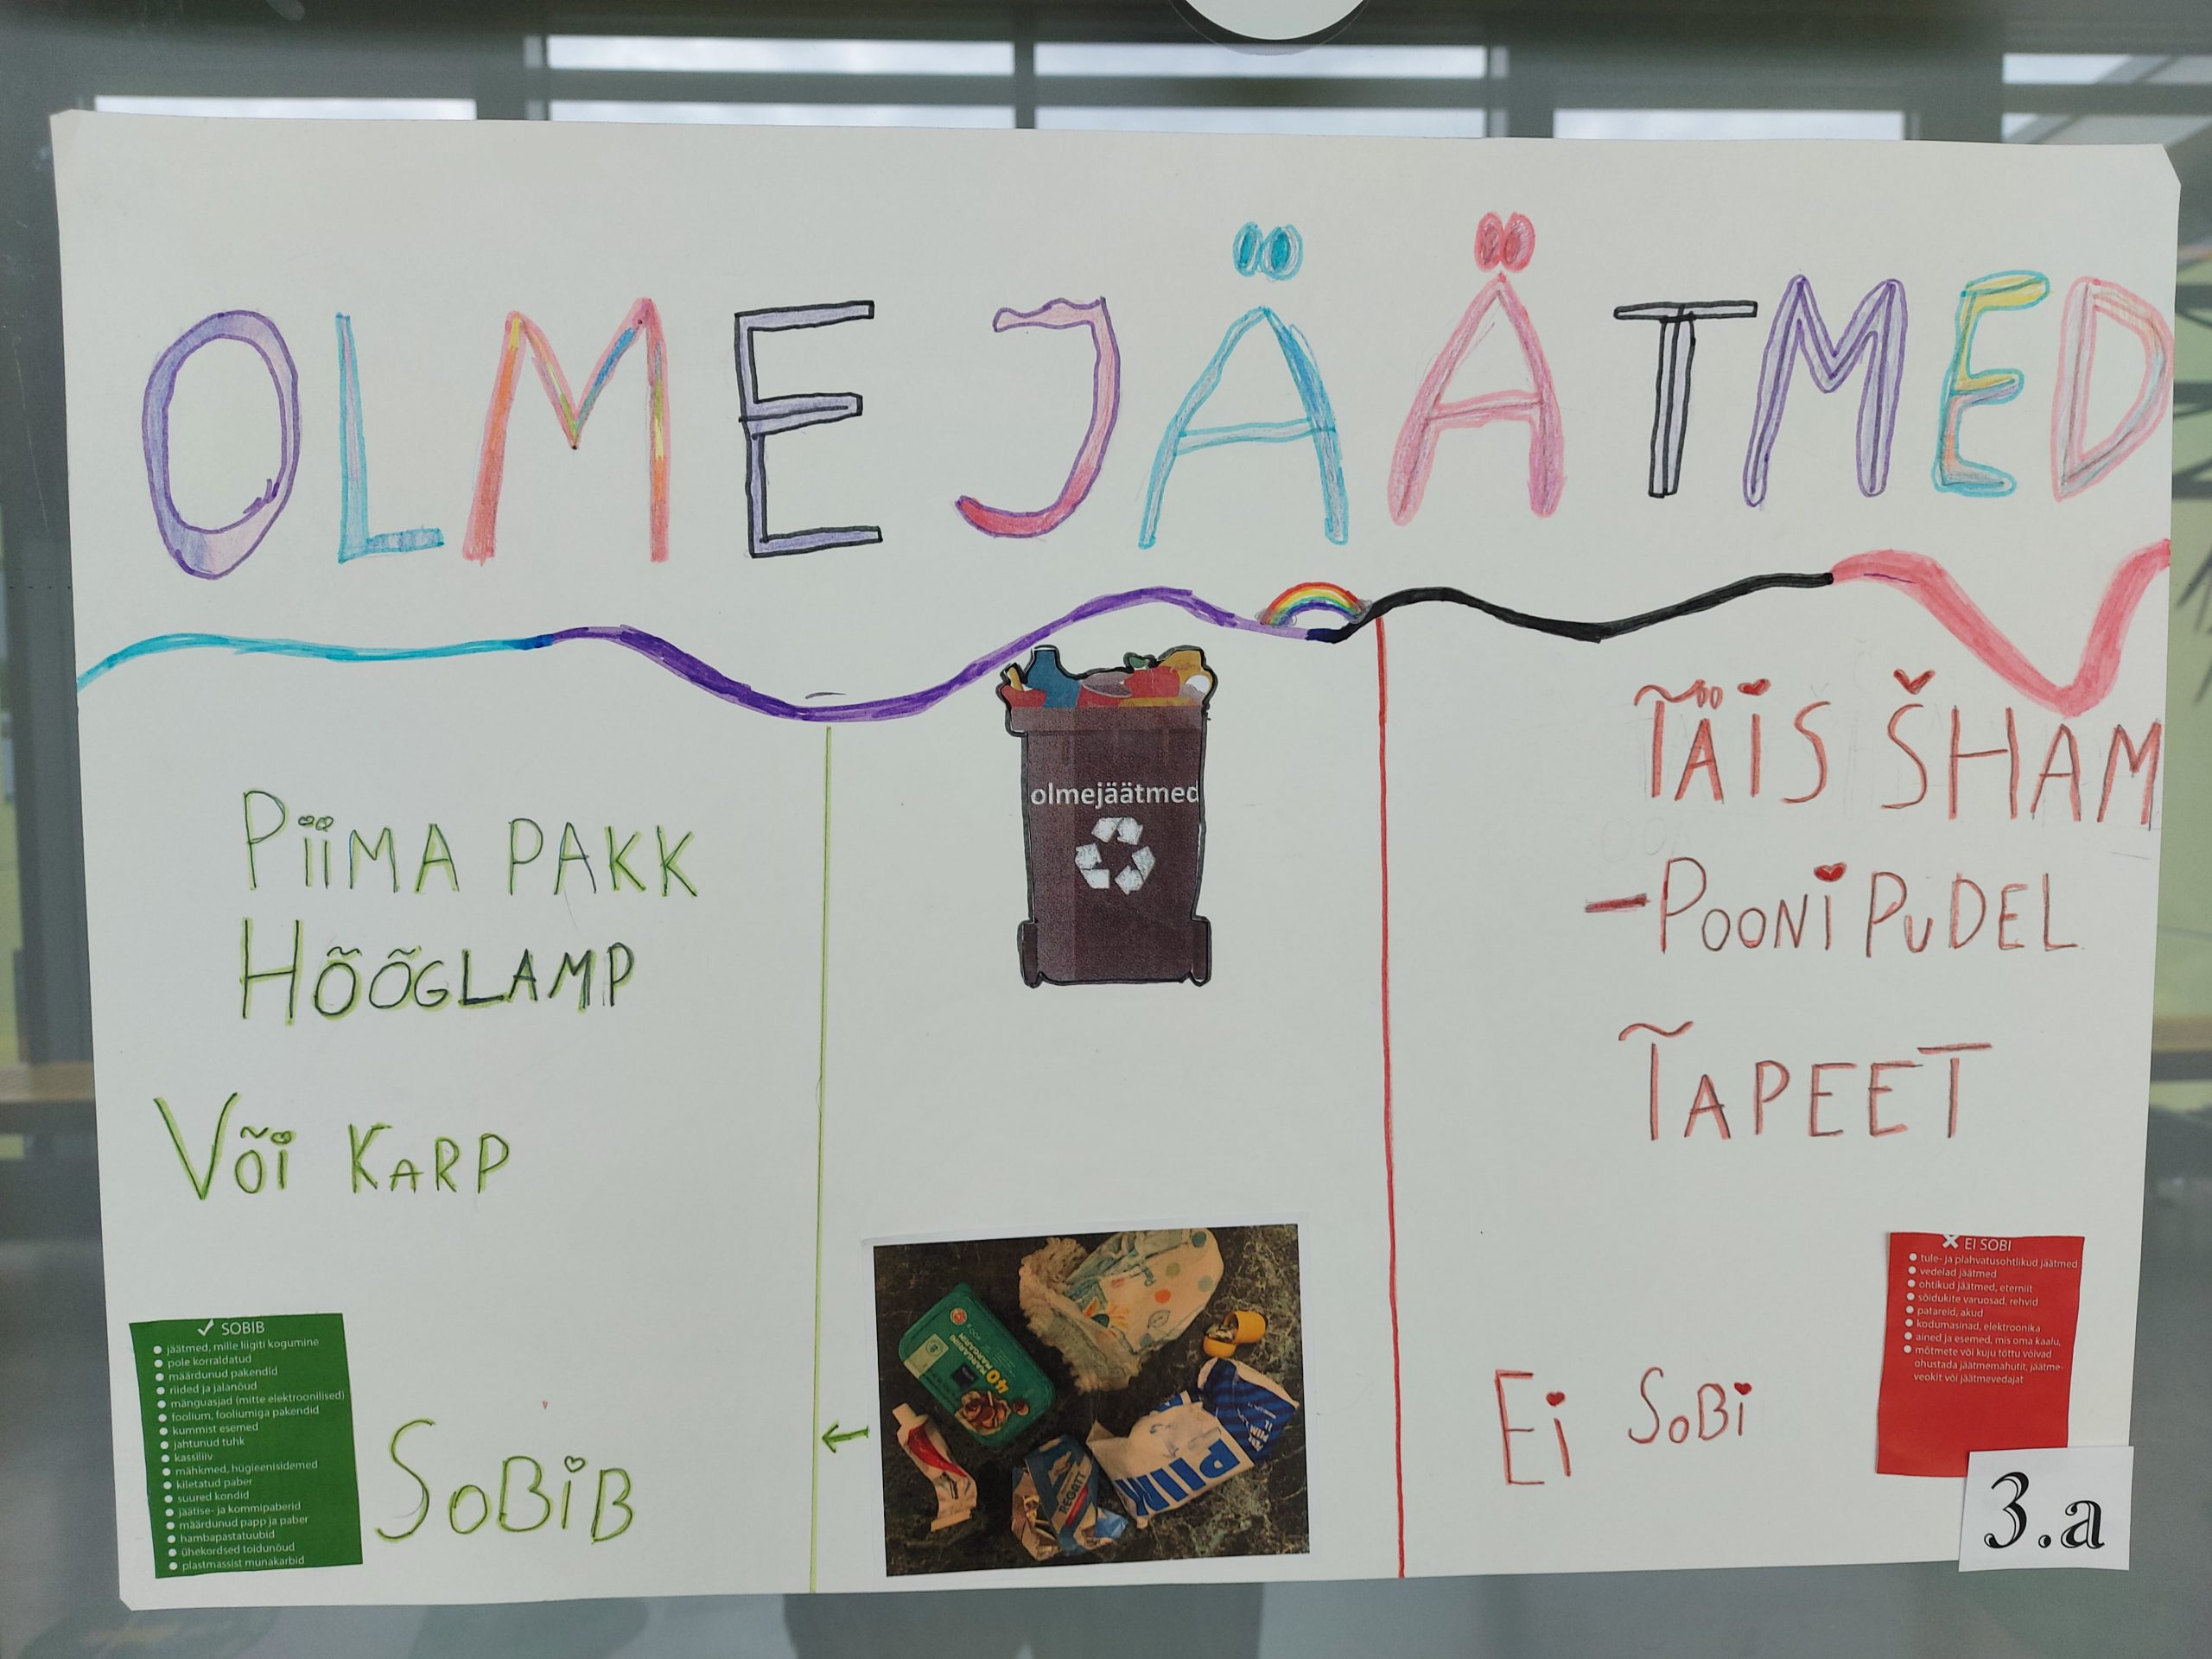 OLMEJÄÄTMED
PiiMA PAKK
HÕÕGLAMP
Või KARP
SOBIB
jäätmed, mille liigiti kogumine
pole korraldatud
määrdunud pakendid
riided ja jalanõud
mänguasjad (mitte elektroonilised)
foolium, fooliumiga pakendid
kummist esemed
jahtunud tuhk
kassiliiv
mähkmed, hügieenisidemed
kiletatud paber
suured kondid
jäätise- ja kommipaberid
määrdunud papp ja paber
hambapastatuubid
ühekordsed toidunõud
plastmassist munakarbid
SoBiB
olmejäätmed
40
MARGARIIN
PIIM
REGATT
TÄiS ŠHAM
-POONi PuDEL
TAPEET
Ei SoBi
EI SOBI
tule- ja plahvatusohtlikud jäätmed
vedelad jäätmed
ohtlikud jäätmed, eterniit
sõidukite varuosad, rehvid
patareid, akud
kodumasinad, elektroonika
ained ja esemed, mis oma kaalu,
mõtmete või kuju tõttu võivad
ohustada jäätmemahutit, jäätme-
veokit või jäätmevedajat
3.a